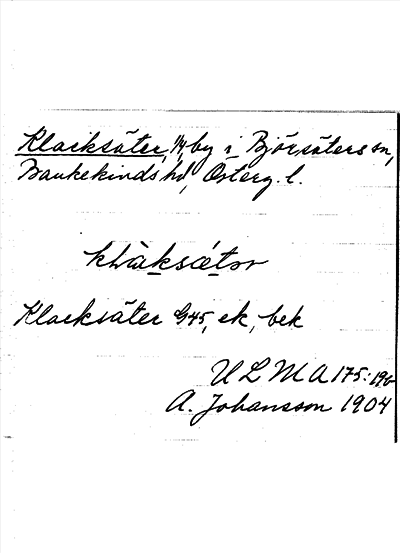 Klacksäter, by i Björsäters sn,
Bankekinds hd, Österg. l.
Klacksäter G45, ek, bek
ULMA 175:196
A. Johansson 1904